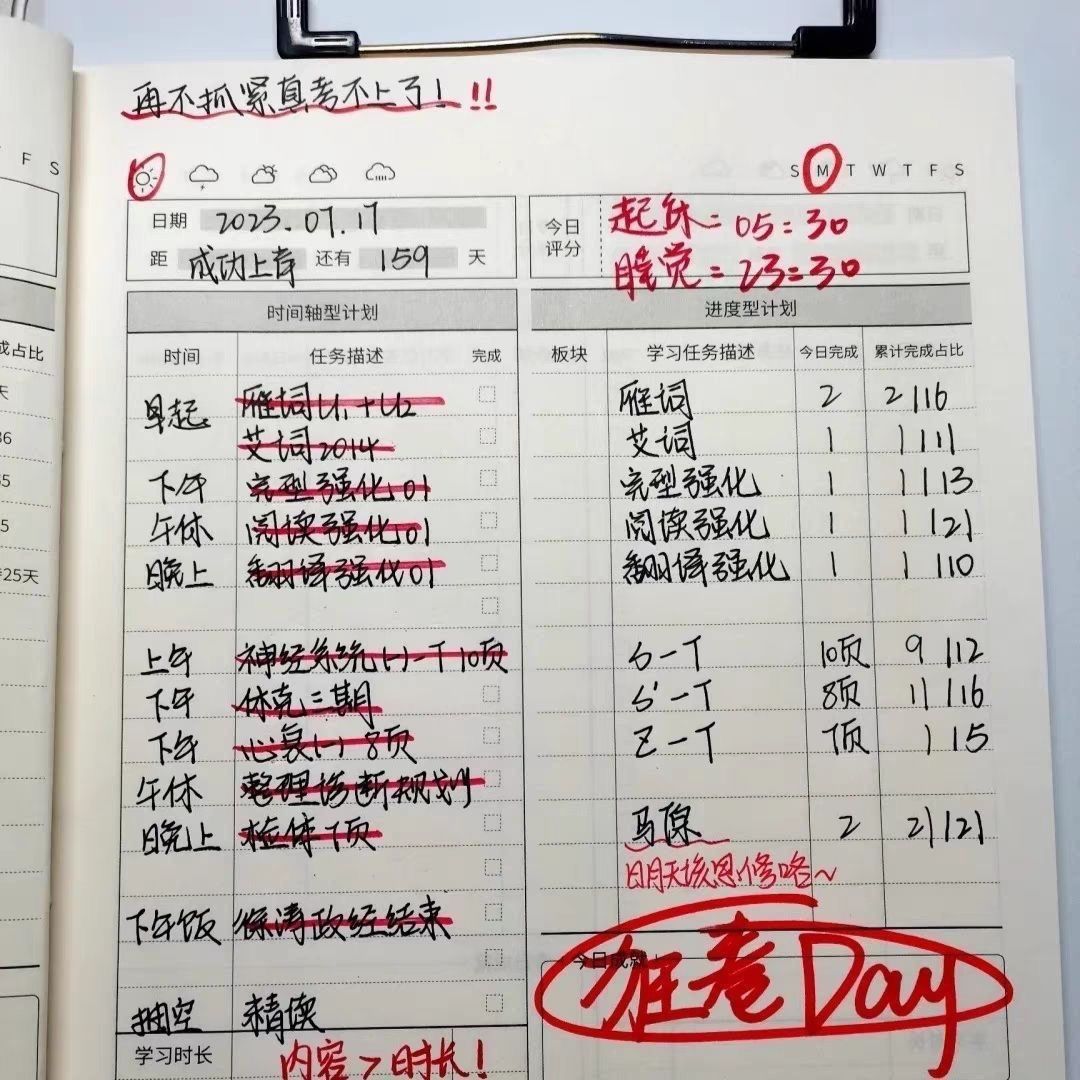 再不抓紧真考不上了！!!
F S
S M T W T F S
日期 2023.07.17
距 成功上岸 还有 159 天
今日评分
起床=05=30
睡觉=23=30
时间轴型计划
时间 任务描述 完成
早起 雁词U1+U2
艾词2014
下午 完型强化01
午休 阅读强化01
晚上 翻译强化01
上午 神经系统(一)-T 10页
下午 休克三期
下午 心衰(一) 8页
午休 整理诊断规划
晚上 检体7页
下午饭 徐涛政经结束
抽空 精读
学习时长 内容>时长!
进度型计划
板块 学习任务描述 今日完成 累计完成占比
雁词 2 2|16
艾词 1 1|11
完型强化 1 1|13
阅读强化 1 1|21
翻译强化 1 1|10
S-T 10页 9|12
S-T 8页 1|16
Z-T 7页 1|15
马原 2 21|21
明天埃思修咯~
今日成就
狂卷Day
成占比
天
36
55
5
25天